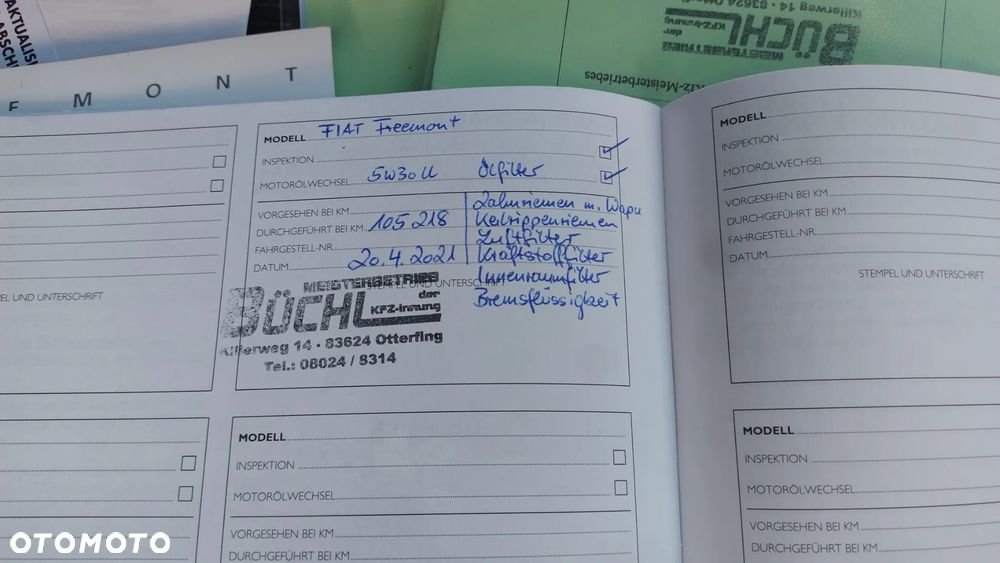 AKTUALIS
ABSCHI
EMONT
Killerweg 14 · 83624 Otterfing
BÜCHL
der
KFZ-Innung
MEISTERBETRIEB
Kfz-Meisterbetriebes
MODELL FIAT Freemont
INSPEKTION
MOTORÖLWECHSEL 5W30 Ölfilter
VORGESEHEN BEI KM
DURCHGEFÜHRT BEI KM 105 218
FAHRGESTELL-NR.
DATUM 20.4.2021
Zahnriemen m. Wapu
Keilrippenriemen
Luftfilter
Kraftstofffilter
Innenraumfilter
Bremsflüssigkeit
STEMPEL UND UNTERSCHRIFT
MEISTERBETRIEB
BÜCHL
der
KFZ-Innung
Killerweg 14 · 83624 Otterfing
Tel.: 08024 / 8314
PEL UND UNTERSCHRIFT
MODELL
INSPEKTION
MOTORÖLWECHSEL
VORGESEHEN BEI KM
DURCHGEFÜHRT BEI KM
FAHRGESTELL-NR.
DATUM
STEMPEL UND UNTERSCHRIFT
MODELL
INSPEKTION
MOTORÖLWECHSEL
VORGESEHEN BEI KM
DURCHGEFÜHRT BEI KM
MODELL
INSPEKTION
MOTORÖLWECHSEL
VORGESEHEN BEI KM
DURCHGEFÜHRT BEI KM
OTOMOTO